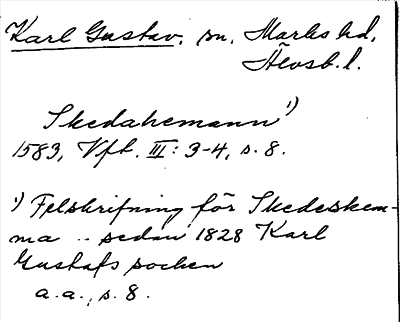 Karl Gustav, sn, Marks hd,
Älvsb. l.
Skedahemann¹)
1583, Vfk. III: 3-4, s. 8.
¹) Felskrifning för Skedeskem-
ma .. sedan 1828 Karl
Gustafs socken
a.a., s. 8.